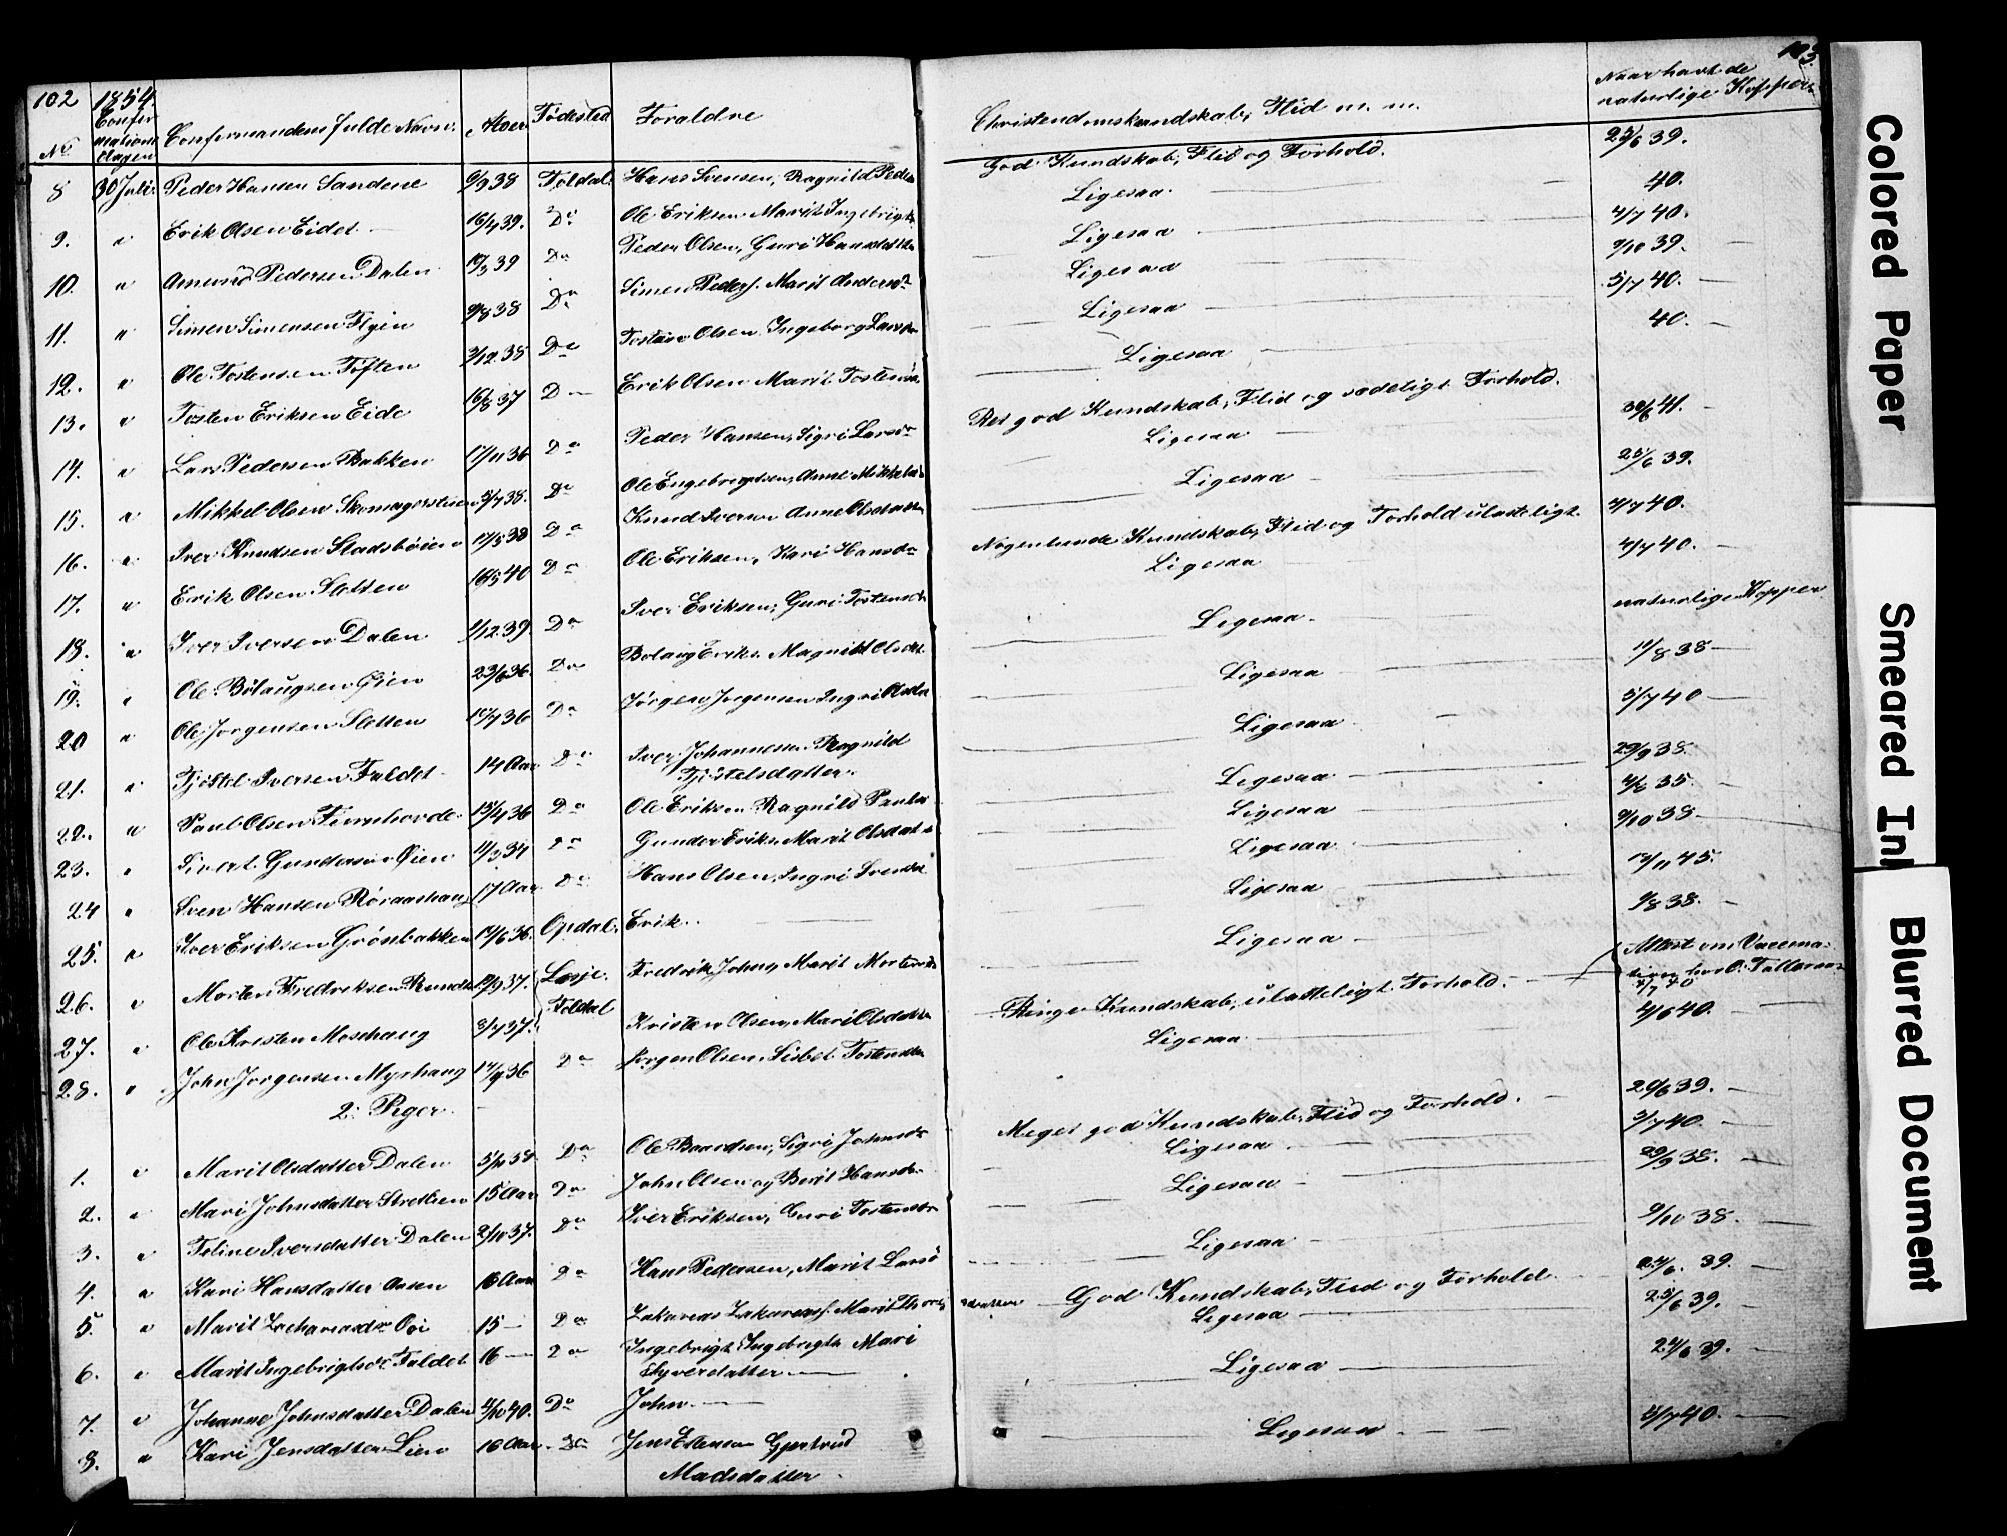 102
1854.
Confir
mations
dagen
No
Confirmandens fulde Navn.
Alder
Födested
Foraldre
8 30 Juli Peder Hansen Sandene 6/9 38 Foldal. Hans Svensen, Ragnild Peders
9. " Erik Olsen Eidet 16/4 39. Do Ole Eriksen Marit Ingebrigts
10. " Pedersen Dalen 19/3 39 Do Peder Olsen, Guri Hansdatter
11. " Simen Simensen Flyen 9/8 38 Do Simen Peders. Marit Andersd
12. " Ole Tostensen Tøften 3/12 38 Do Olsen Ingeborg Lars
13. " Tosten Eriksen Eide 16/8 37 D Erik Olsen Marit Tostensd
14. " Lars Pedersen Bakken 17/11 36 Do Peder Hansen, Sigri Larsd
15. " Mikkel Olsen 3/4 38. Do Ole Engebrigtsen, Anne Mikkels
16. " Iver Knudsen Stadsbøien 17/5 38 Do Knud Iversen Anne Olsdatter
17. " Erik Olsen Sletten 16/5 40 Do Ole Eriksen, Kari Hansdr
18. " Iver Iversen Dalen 1/12 39 Do Iver Eriksen, Guri Tostensdr
19. " Ole Bølaugsen Øien 23/6 36. Do Bolaug Eriks. Magnild Olsdr
20 " Ole Jorgensen Sletten 17/4 36 Do Jørgen Jorgensen Ingri Olsdr
21. " Tjöstel Iversen Faldet 14 Aar Do Iver Johannesen Ragnild
Tjöstelsdatter.
22. " Paul Olsen 13/4 36 Do Ole Eriksen Ragnild Pauls
23. " Sivert Gundersen Øien 11/3 34 Do Gunder Eriks. Marit Olsdatr
24 " Sven Hansen 17 Aar Do Hans Olsen, Ingri Svensdr
25. " Iver Eriksen Grönbakken 14/6 36. Opdal. Erik.
26. " Morten Fredriksen 12/9 37. Lesje. Fredrik Johns, Marit Mortensdr
27. " Ole Kristen Moshaug 3/7 37. Foldal Kristen Olsen, Mari Olsdatter
28. " John Jorgensen Myrhaug 14/9 36 Do Jørgen Olsen Lisbet Tostensdr
2: Piger.
1. " Marit Olsdatter Dalen Do Ole Baardsen, Sigri Johnsdr
2. " Mari Johnsdatter Streitlien 15 Aar Do John Olsen og Berit Hansdr
3. " Iversdatter Dalen 2/10 37. Do Iver Eriksen, Guri Tostensdr
4. " Kari Hansdatter Aasen 16 Aar Do Hans Pedersen, Marit Larsd
5. " Marit Zachariasdr 15 — Do Zakarias Zakarias. Marit Thores datter
6. " Marit Ingebrigtsdr Faldet 16 — Do Ingebrigt Ingebrigts Mari
Syverdatter
7. " Johanne Johnsdatter Dalen 4/10 40. Do John.
8. " Kari Jensdatter Lien 16 Aar. Do Jens Estensen Gjertrud
Madsdatter.
103.
Christendomskundskab, Flid m. m.
Naar havt de
naturlige Kopper.
God Kundskab, Flid og Forhold. 25/6 39.
Ligesaa 40.
Ligesaa 4/7 40.
Ligesaa 9/10 39.
Ligesaa 5/7 40.
Ligesaa 40.
Ret god Kundskab, Flid og sædeligt Forhold. 30/6 41.
Ligesaa
Ligesaa 25/6 39.
Nogenlunde Kundskab, Flid og Forhold ulasteligt. 4/7 40.
Ligesaa 4/7 40.
Ligesaa. naturlige Kopper.
Ligesaa 11/8 38
Ligesaa 5/7 40
Ligesaa 29/9 38.
Ligesaa 4/6 35.
Ligesaa 9/10 38.
Ligesaa 12/11 45.
Ligesaa 9/8 38.
Ringe Kundskab, ulasteligt Forhold. Attest om Vaccina-
3/7 40
Ligesaa 4/6 40.
Meget god Kundskab, Flid og Forhold. 29/6 39.
Ligesaa 3/7 40.
Ligesaa 29/9 38.
Ligesaa 9/10 38.
God Kundskab, Flid og Forhold 24/6. 39.
Ligesaa 25/6 39.
Ligesaa 24/6 39.
Ligesaa 5/7 40.
Colored Paper
Smeared Ink
Blurred Document